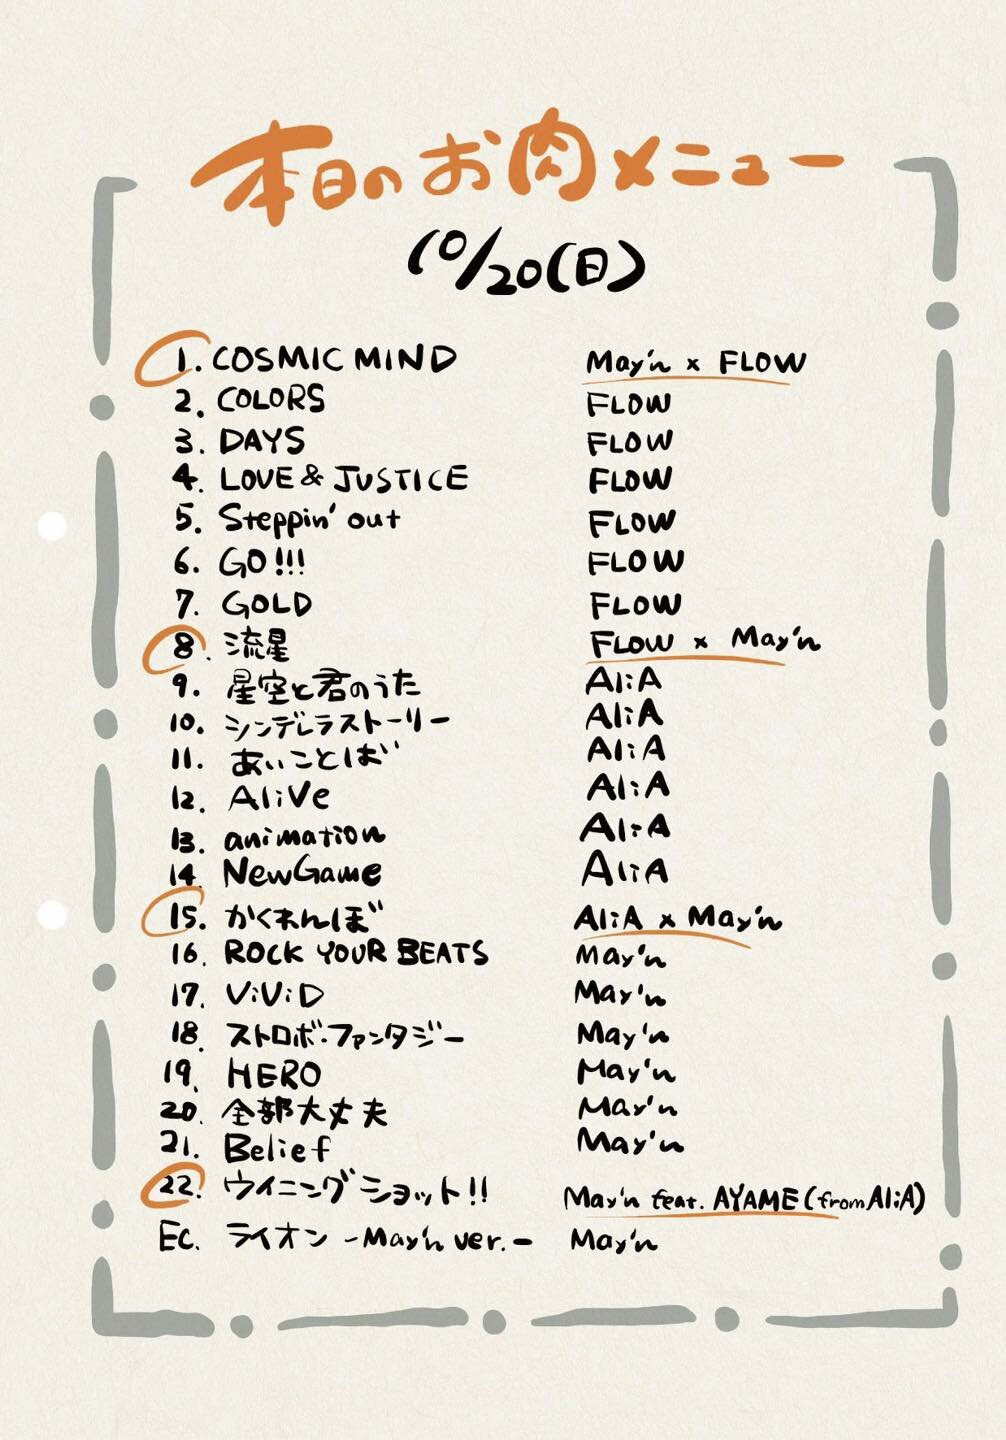 本日のお肉メニュー
10/20(日)
1. COSMIC MIND May'n x FLOW
2. COLORS FLOW
3. DAYS FLOW
4. LOVE & JUSTICE FLOW
5. Steppin' out FLOW
6. GO!!! FLOW
7. GOLD FLOW
8. 流星 FLOW x May'n
9. 星空と君のうた AliA
10. シンデレラストーリー AliA
11. あいことば AliA
12. AliVe AliA
13. animation AliA
14. NewGame AliA
15. かくれんぼ AliA x May'n
16. ROCK YOUR BEATS May'n
17. ViViD May'n
18. ストロボ・ファンタジー May'n
19. HERO May'n
20. 全部大丈夫 May'n
21. Belief May'n
22. ウイニングショット!! May'n feat. AYAME (from AliA)
EC. ライオン -May'n ver.- May'n